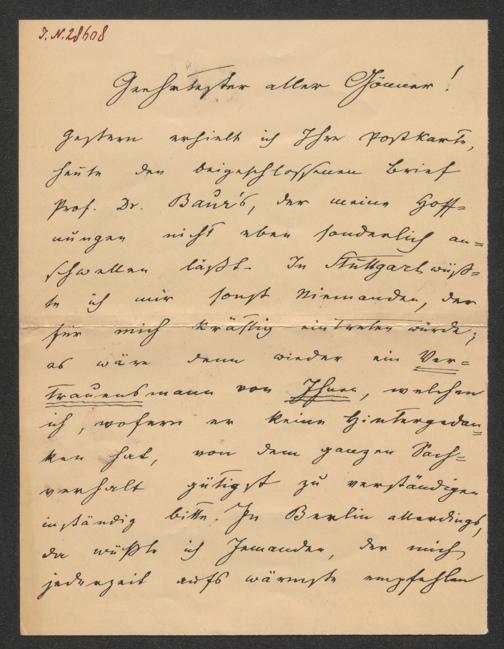 J. N. 28608
Geehrtester aller Gönner!
Gestern erhielt ich Ihre Postkarte,
heute den beigeschlossenen Brief
Prof. Dr. Baurs, der meine Hoff=
nungen nicht eben sonderlich an=
schwellen läßt. In Stuttgart wüß=
te ich mir sonst Niemanden, der
für mich kräftig eintreten würde;
es wäre denn wieder ein Ver=
trauensmann von Ihnen, welchen
ich, wofern er keine Hintergedan=
ken hat, von dem ganzen Sach=
verhalt gütigst zu verständigen
inständig bitte. In Berlin allerdings,
da wüßte ich Jemanden, der mich
jederzeit aufs wärmste empfehlen